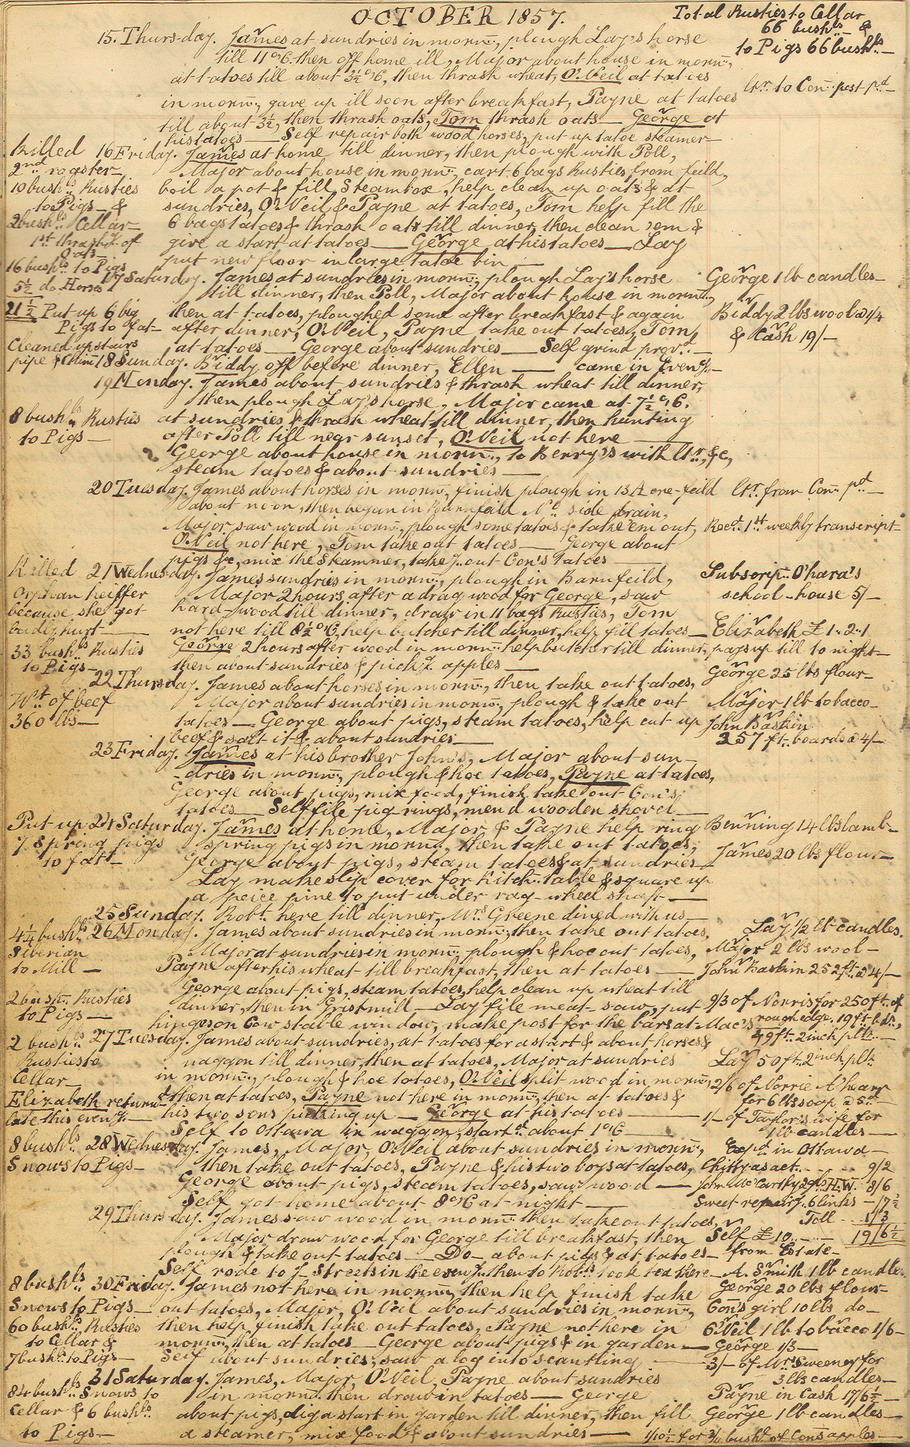 OCTOBER 1857.
Total Rusties to Cellar
66 bushls &
to Pigs 66 bushls
15. Thursday. James at sundries in mornng, plough Lay's horse
till 11 o'C. then off home ill, Major about house in mornng,
at tatoes till about 3½ o'C, then thrash wheat, O'Neil at tatoes
Ltr. to Con. post pd
in mornng, gave up ill soon after breakfast, Payne at tatoes
till about 3½, then thrash oats, Tom thrash oats — George at
his tatoes — Self repair both wood horses, put up tatoe steamer
Killed
2nd rooster
10 bushls Rusties
to Pigs — &
2 bushls Cellar
1st thrashg of
Oats
16 bushls to Pigs
5½ do Horses
21½
16 Friday. James at home till dinner, then plough with Poll,
Major about house in mornng, cart 6 bags Rusties from feild,
boil a pot & fill Steambox, help clean up oats & at
sundries, O'Neil & Payne at tatoes, Tom help fill the
6 bags tatoes & thrash oats till dinner, then clean 'em &
give a start at tatoes — George at his tatoes — Lay
put new floor in large tatoe bin —
17 Saturday. James at sundries in mornng, plough Lay's horse
till dinner, then Poll, Major about house in mornng,
then at tatoes, ploughed some after breakfast & again
after dinner, O'Neil, Payne take out tatoes, Tom
at tatoes — George about sundries — Self grind provr.
George 1 lb candles
Biddy 2 lbs wool
& Cash 19/-
Put up 6 big
Pigs to fat
Cleaned upstairs
pipe & chimy
18 Sunday. Biddy off before dinner, Ellen — came in Eveng
19 Monday. James about sundries & thrash wheat till dinner,
then plough Lay's horse, Major came at 7½ o'C.
8 bushls Rusties
to Pigs —
at sundries & thrash wheat till dinner, then hunting
after Poll till near sunset, O'Neil not here —
George about house in mornng, to Berry's with Ltr, &c,
steam tatoes & about sundries —
20 Tuesday. James about horses in mornng, finish plough in 15 A ore-feild
about noon, then began in Barnfeild No. side drain,
Major saw wood in mornng, plough some tatoes & take 'em out,
O'Neil not here, Tom take out tatoes — George about
pigs &c, mix the steammer, take up out Con's tatoes
Ltr. from Con. pd
Recd. 1st weekly transcript
Killed
heiffer
because she got
badly hurt
33 bushls Rusties
to Pigs
21 Wednesday. James sundries in mornng, plough in Barnfeild,
Major 2 hours, after a drag wood for George, saw
hard-wood till dinner, draw in 11 bags Rusties, Tom
not here till 8½ o'C, help butcher till dinner, help fill tatoes
George 2 hours after wood in mornng help butcher till dinner,
then about sundries & pickg apples —
Subscripn. O'hara's
school-house 5/-
Elizabeth £1-2-1
pays up till to night
22 Thursday. James about horses in mornng, then take out tatoes,
Major about sundries in mornng, plough & take out
tatoes — George about pigs, steam tatoes, help cut up
beef & salt it & about sundries —
Wt. of beef
360 lbs
George 25 lbs flour
Major 1 lb tobacco
John Baskin
257 ft. boards a 4/-
23 Friday. James at his brother John's, Major about sun-
-dries in mornng, plough & hoe tatoes, Payne at tatoes,
George about pigs, mix food, finish take out Con's
tatoes — Self file pig rings, mend wooden shovel
Put up
7 Spring pigs
to fatt
24 Saturday. James at home, Major & Payne help ring
spring pigs in mornng, then take out tatoes,
George about pigs, steam tatoes & at sundries
Lay make slip cover for kitchn. table & square up
a peice pine to put under rag-wheel shaft —
Benning 14 lbs lamb
James 20 lbs flour
25 Sunday. Robt. here till dinner, Mr. Greene dined with us
4¼ bushls
Siberian
to Mill —
26 Monday. James about sundries in mornng, then take out tatoes,
Major at sundries in mornng, plough & hoe out tatoes,
Payne after his wheat till breakfast, then at tatoes
George about pigs, steam tatoes, help clean up wheat till
dinner, then in Gristmill — Lay file meat-saw, put
hinges on Cow stable window, make post for the bars at Mac's
Lay ½ lb candles.
Major 2 lbs wool
John Baskin 252 ft. a 4/-
9/3 of Norris for 250 ft. of
rough edge, 19 ft. &
49 ft. 2 inch plk
2 bush. Rusties
to Pigs —
2 bushls
Rusties to
Cellar
Elizabeth returnd
late this eveng
27 Tuesday. James about sundries, at tatoes for a start & about horses &
waggon till dinner, then at tatoes, Major at sundries
in mornng, plough & hoe tatoes, O'Neil split wood in mornng,
& then at tatoes, Payne not here in mornng, then at tatoes &
his two sons picking up — George at his tatoes —
Self to Ottawa in waggon, startd about 1 o'C —
Lay 50 ft. 2 inch plk
2/6 of Norris
for 6 lbs soap a 5d
1/- of Taylor's wife for
1 lb candles
8 bushls
Snows to Pigs
28 Wednesday. James, Major, O'Neil about sundries in mornng,
then take out tatoes, Payne & his two boys at tatoes,
George about pigs, steam tatoes, saw wood —
Self got home about 8 o'C at night —
Exps. in Ottawa
Chitty as act. 9/2
Sweet repairg. 6 links 1/7½
Toll 1/3
19/6½
29 Thursday. James saw wood in mornng then take out tatoes,
Major draw wood for George till breakfast, then
plough & take out tatoes — Do about pigs & at tatoes
Self rode to J. Streets in the eveng, then to Robt's took tea there
Self £10
from Estate
A. Smith 1 lb candles
8 bushls
Snows to Pigs
60 bushls Rusties
to Cellar &
7 bushls to Pigs
30 Friday. James not here in mornng, then help finish take
out tatoes, Major, O'Neil about sundries in mornng,
then help finish take out tatoes, Payne not here in
mornng, then at tatoes — George about pigs & in garden
Self about sundries, saw a log into scantling —
George 20 lbs flour
Con's girl 10 lbs do
O'Neil 1 lb tobacco 1/6
George 1/3
3/- of Mrs. Sweeney for
3 lbs candles
31 Saturday. James, Major, O'Neil, Payne about sundries
in mornng then draw in tatoes — George
about pigs, dig a start in garden till dinner, then fill
a steamer, mix food & about sundries —
84 bushls Snows to
Cellar & 6 bushls
to Pigs —
Payne in Cash 17/6½
George 1 lb candles
1/10½ for 3/4 bushl. of Con's apples